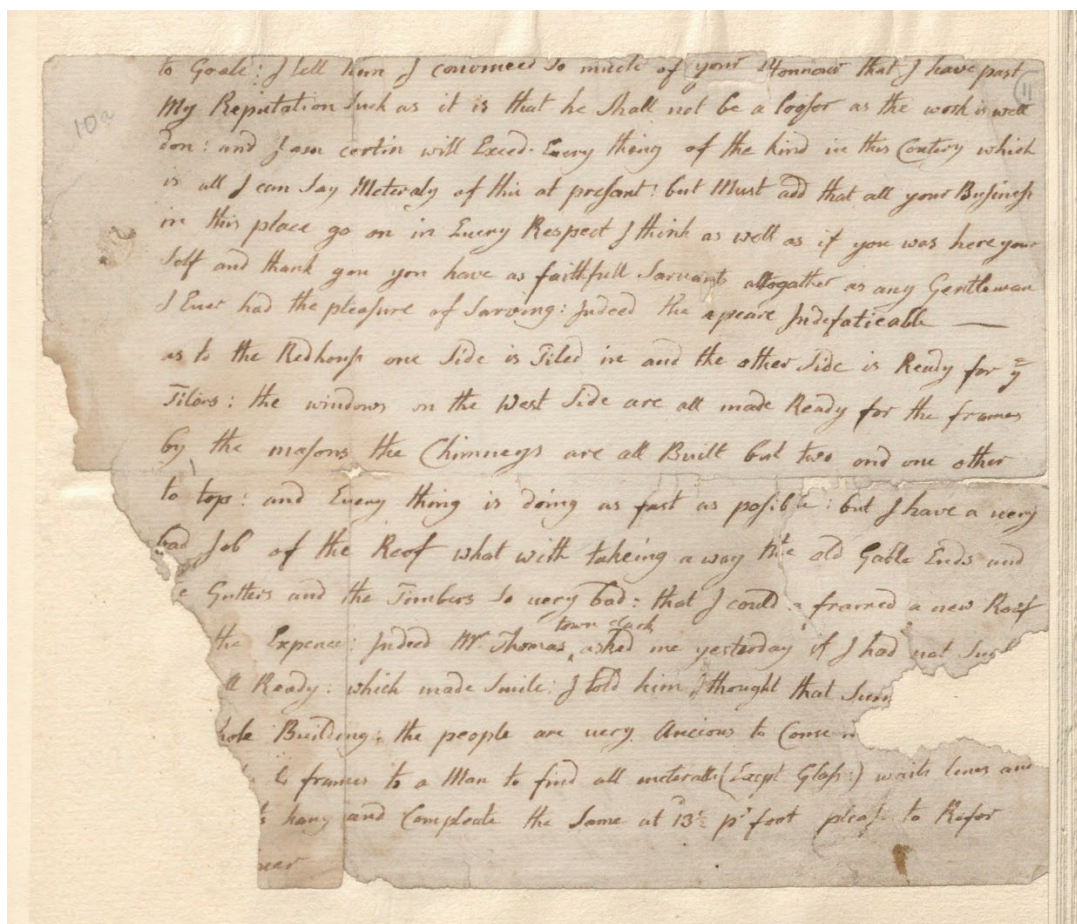 to Goale: I tell him I convinced so much of your Honnour that I have past
11
My Reputation Such as it is that he Shall not be a looser as the work is well
10a
don: and I am certin will Exced Every thing of the kind in this Contery which
is all I can Say Meteraly of this at present: but Must add that all your Business
in this place go on in Every Respect I think as well as if you was here your
Self and thank you you have as faithfull Sarvants altogather as any Gentleman
I Ever had the pleasure of Sarving: Indeed the apeare Indefaticable —
as to the Redhouse one Side is Tiled in and the other Side is Ready for ye
Tilers: the windows on the West Side are all made Ready for the frames
by the masons the Chimneys are all Built but two and one other
to top: and Every thing is doing as fast as posible: but I have a very
bad Job of the Roof what with takeing a way the old Gable Ends and
e Gutters and the Timbers So very bad: that I could a framed a new Roof
the Expence: Indeed Mr. Thomas town clark asked me yesterday if I had not
a Ready: which made Smile: I told him I thought that
hole Building: the people are very Ancious to
frames to a Man to find all meteralls (Except Glass:) waits lines and
hang and Compleate the Same at 13½ pr foot please to Refor
near